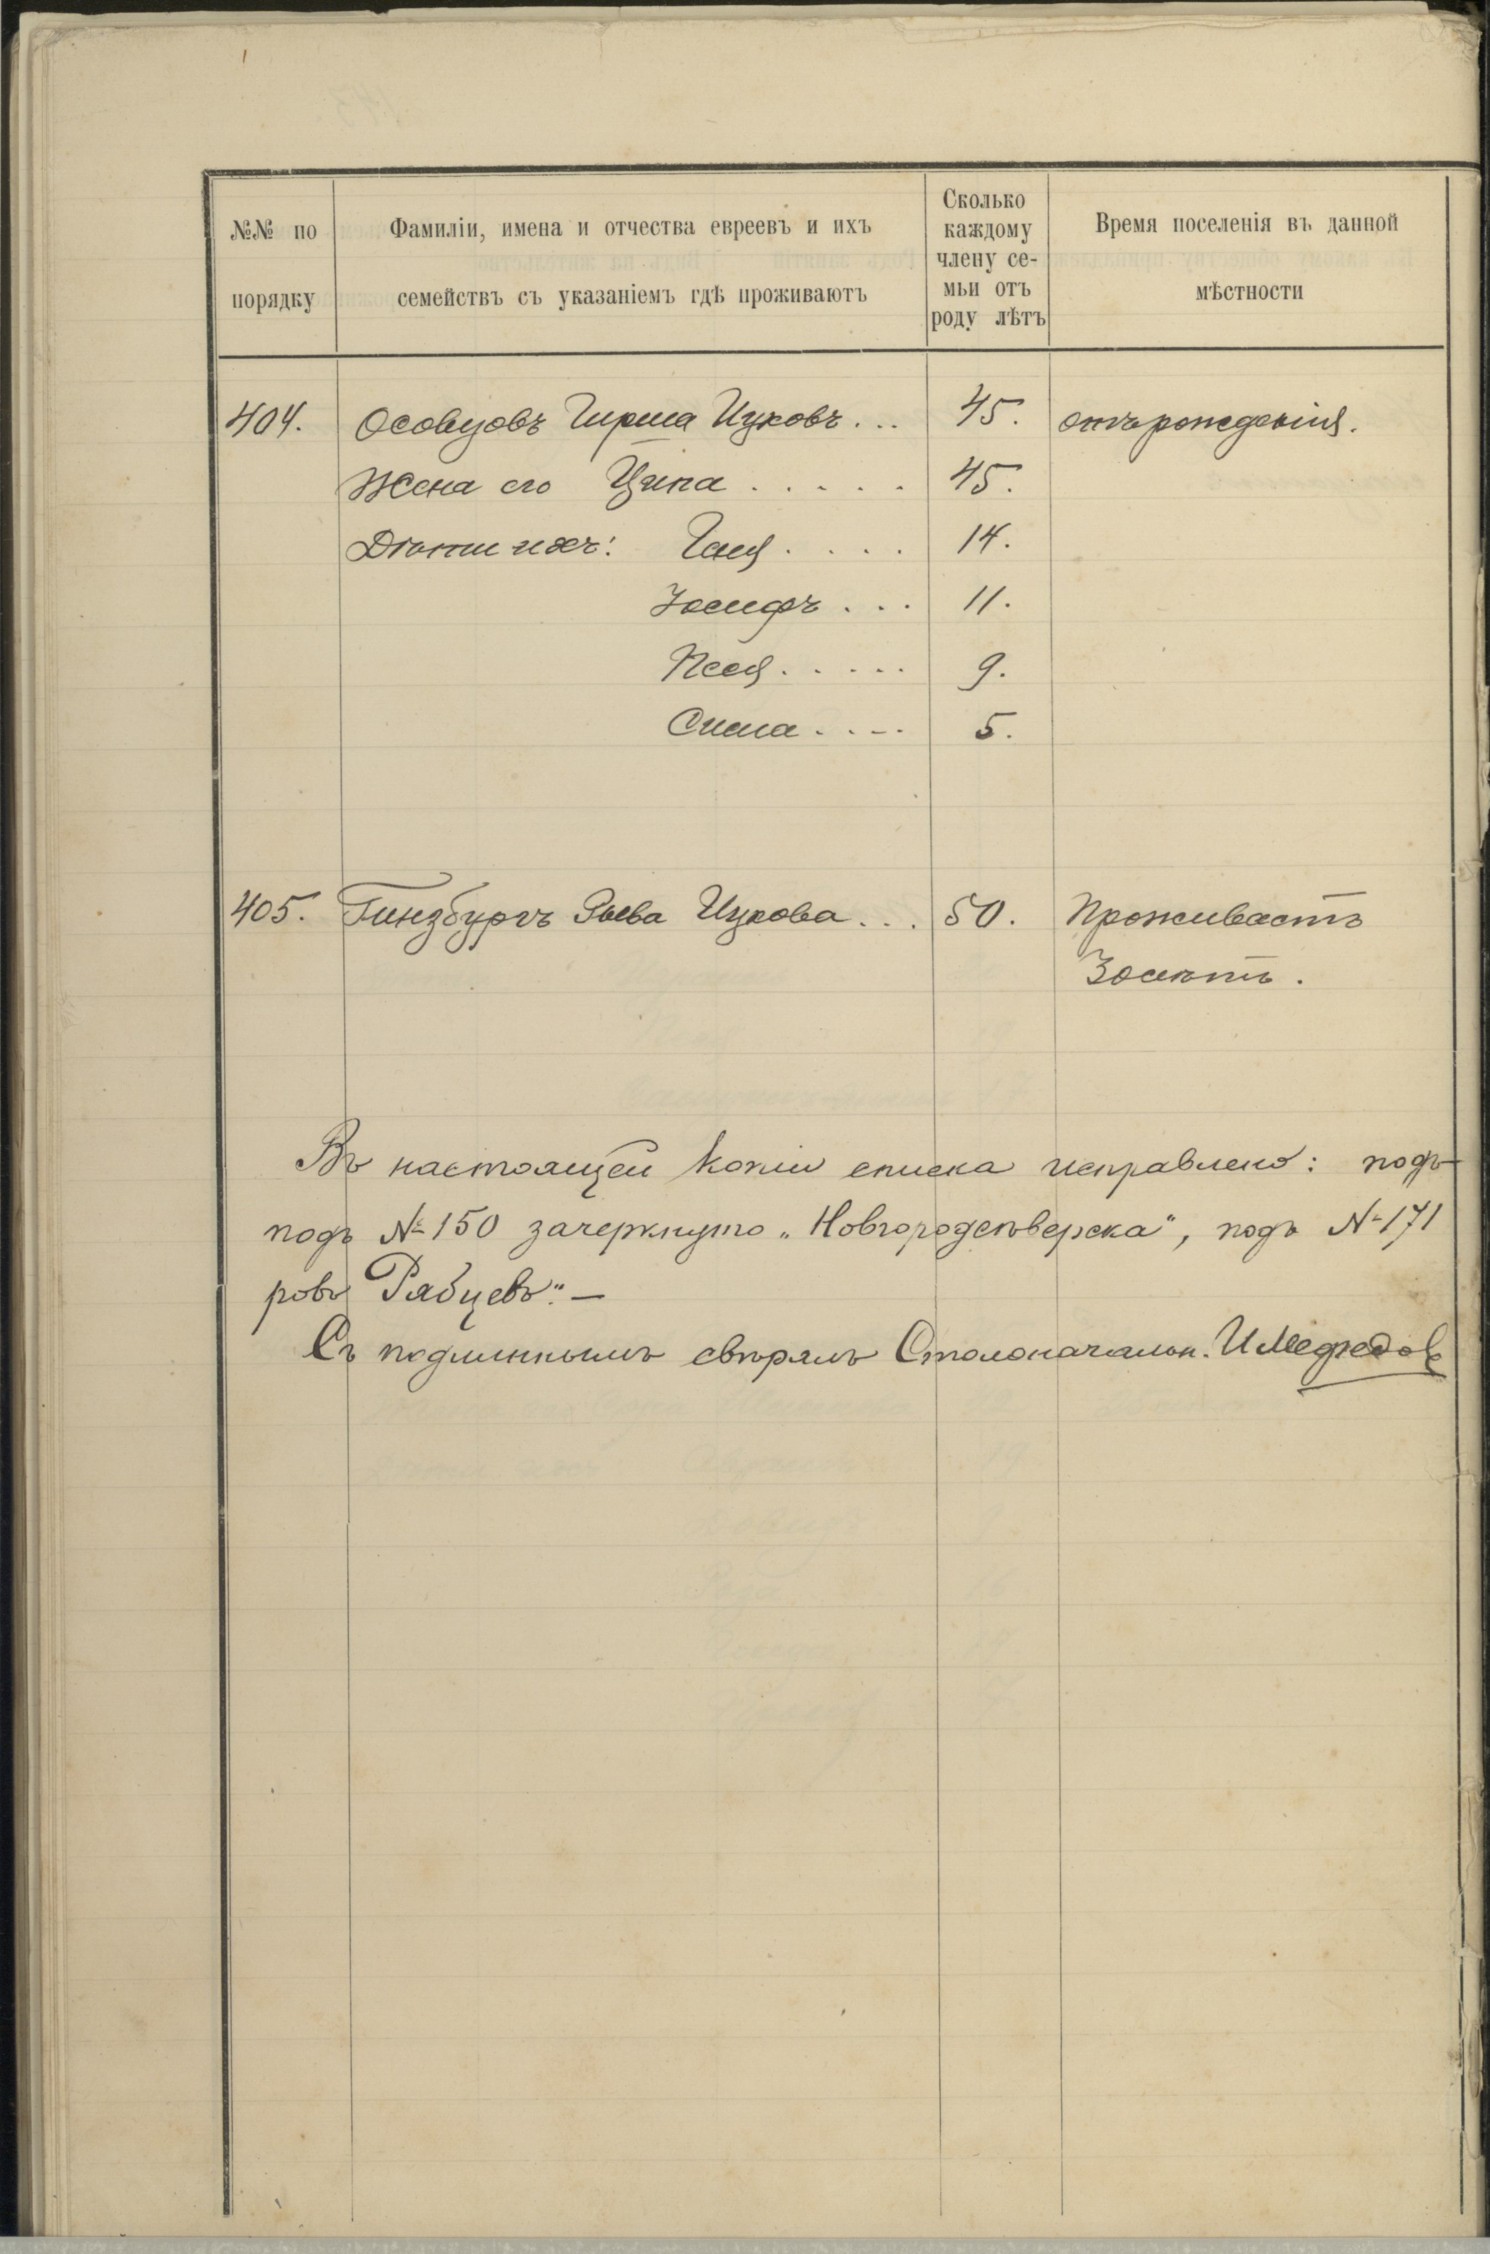 №№ по порядку
Фамиліи, имена и отчества евреевъ и ихъ
семействъ съ указаніемъ гдѣ проживаютъ
Сколько
каждому
члену се-
мьи отъ
роду лѣтъ
Время поселенія въ данной
мѣстности
404. Осовцовъ Гирша Ицковъ... 45. отъ рожденія.
Жена его Ципа ..... 45.
Дѣти ихъ: Ганя .... 14.
Іосифъ ... 11.
Песя ..... 9.
Сима .... 5.
405. Гинзбургъ Рыва Ицкова... 50. Проживаетъ
30 лѣтъ.
Въ настоящей копіи списка исправлено: подъ
подъ № 150 зачеркнуто „Новгородсѣверска", подъ № 171
ровъ Рябцевъ". —
Съ подлиннымъ свѣрялъ Столоначальн.